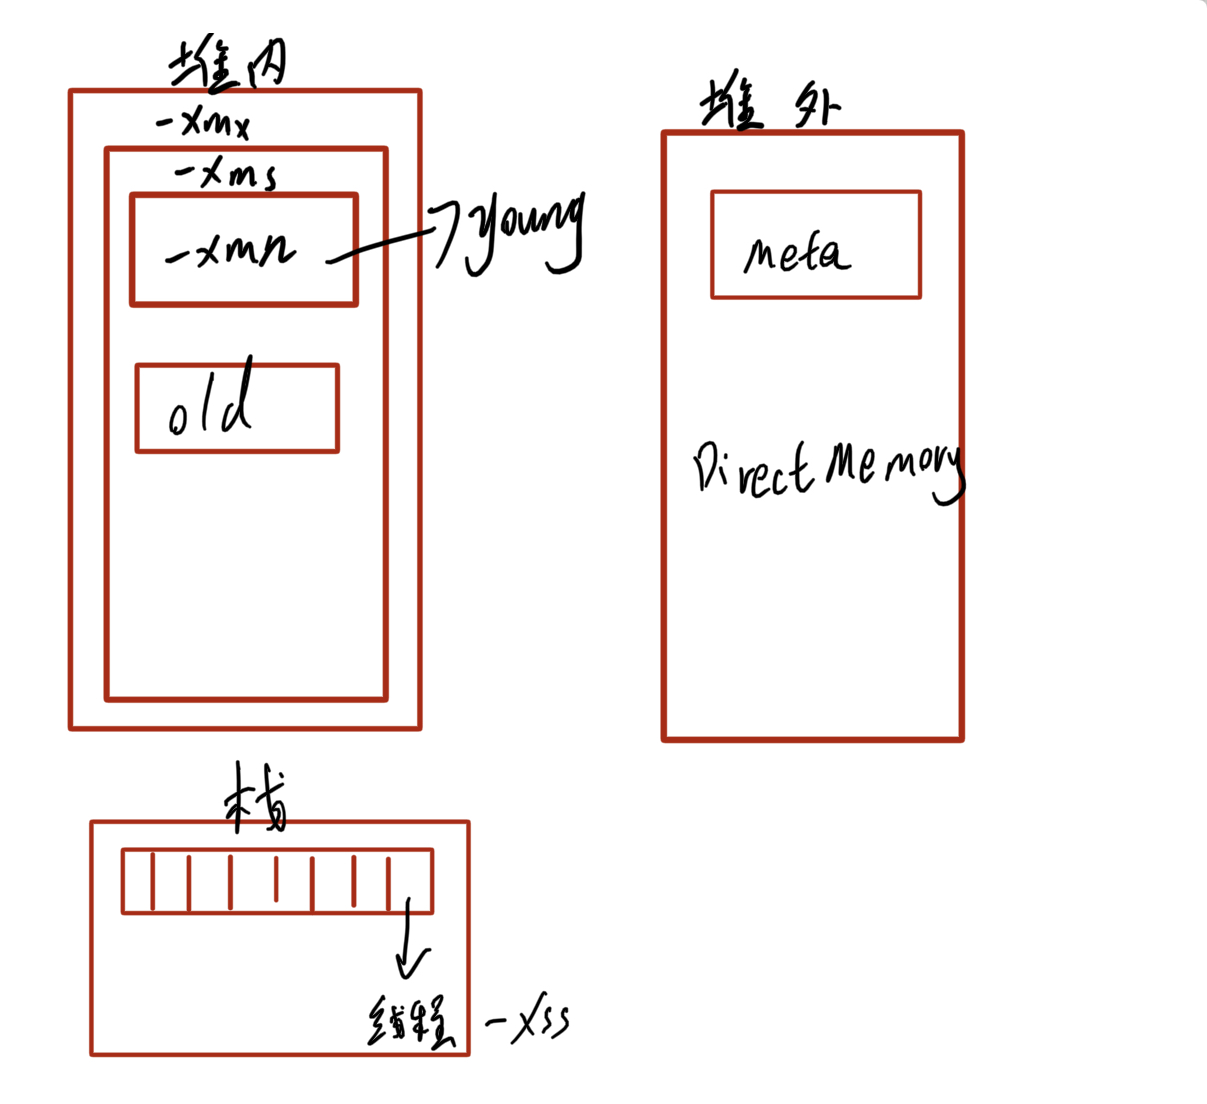 堆内
-xmx
-xms
-xmn
young
old
堆外
meta
Direct Memory
栈
线程 -xss